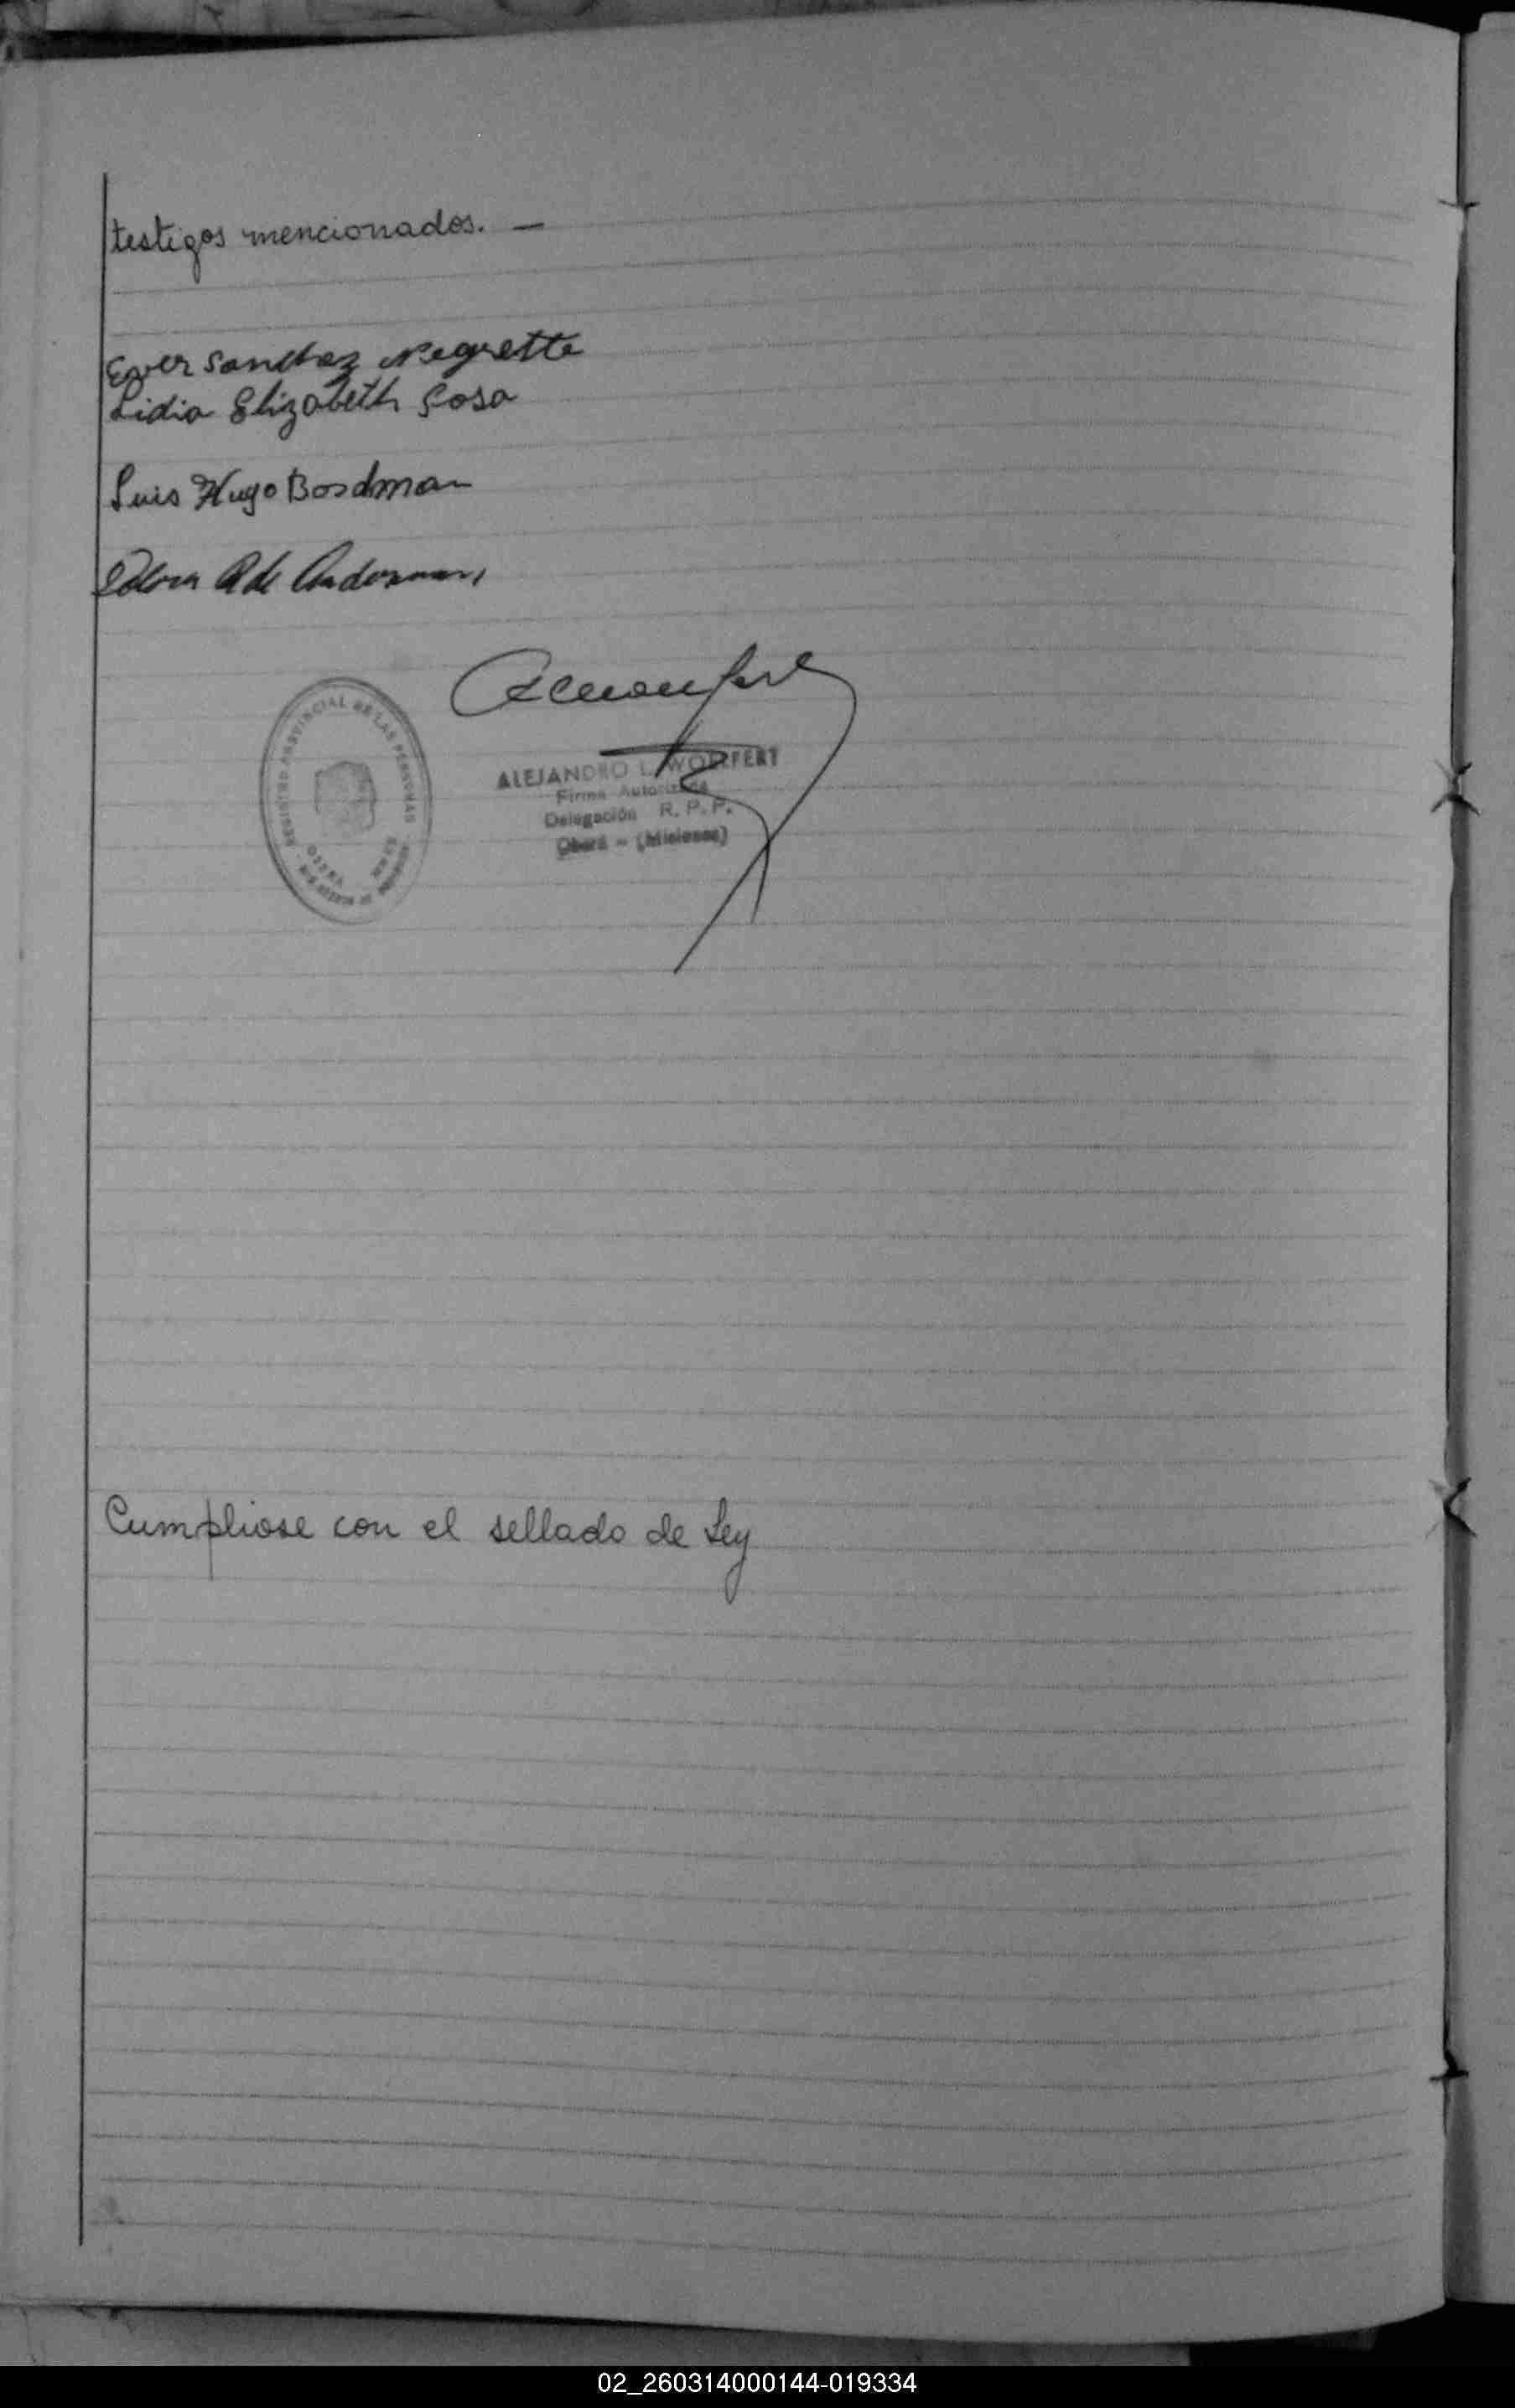 testigos mencionados. —
Ever Sanchez Negrette
Lidia Elizabeth Sosa
Luis Hugo Bordman
de
REGISTRO PROVINCIAL DE LAS PERSONAS
OBERA
ALEJANDRO L. WOERFERT
Firma Autorizada
Delegación R. P. P.
Oberá - (Misiones)
Cumpliose con el sellado de Ley
02_260314000144-019334